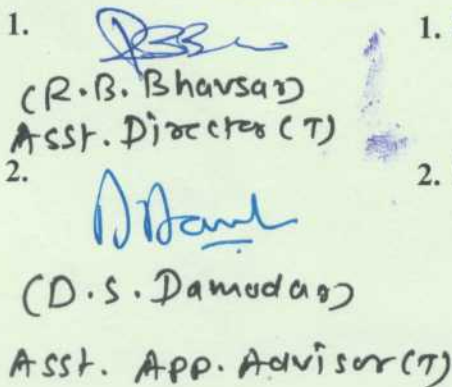 1.
1.
(R.B. Bhavsar)
Asst. Director (T)
2.
2.
(D.S. Damodar)
Asst. App. Advisor (T)